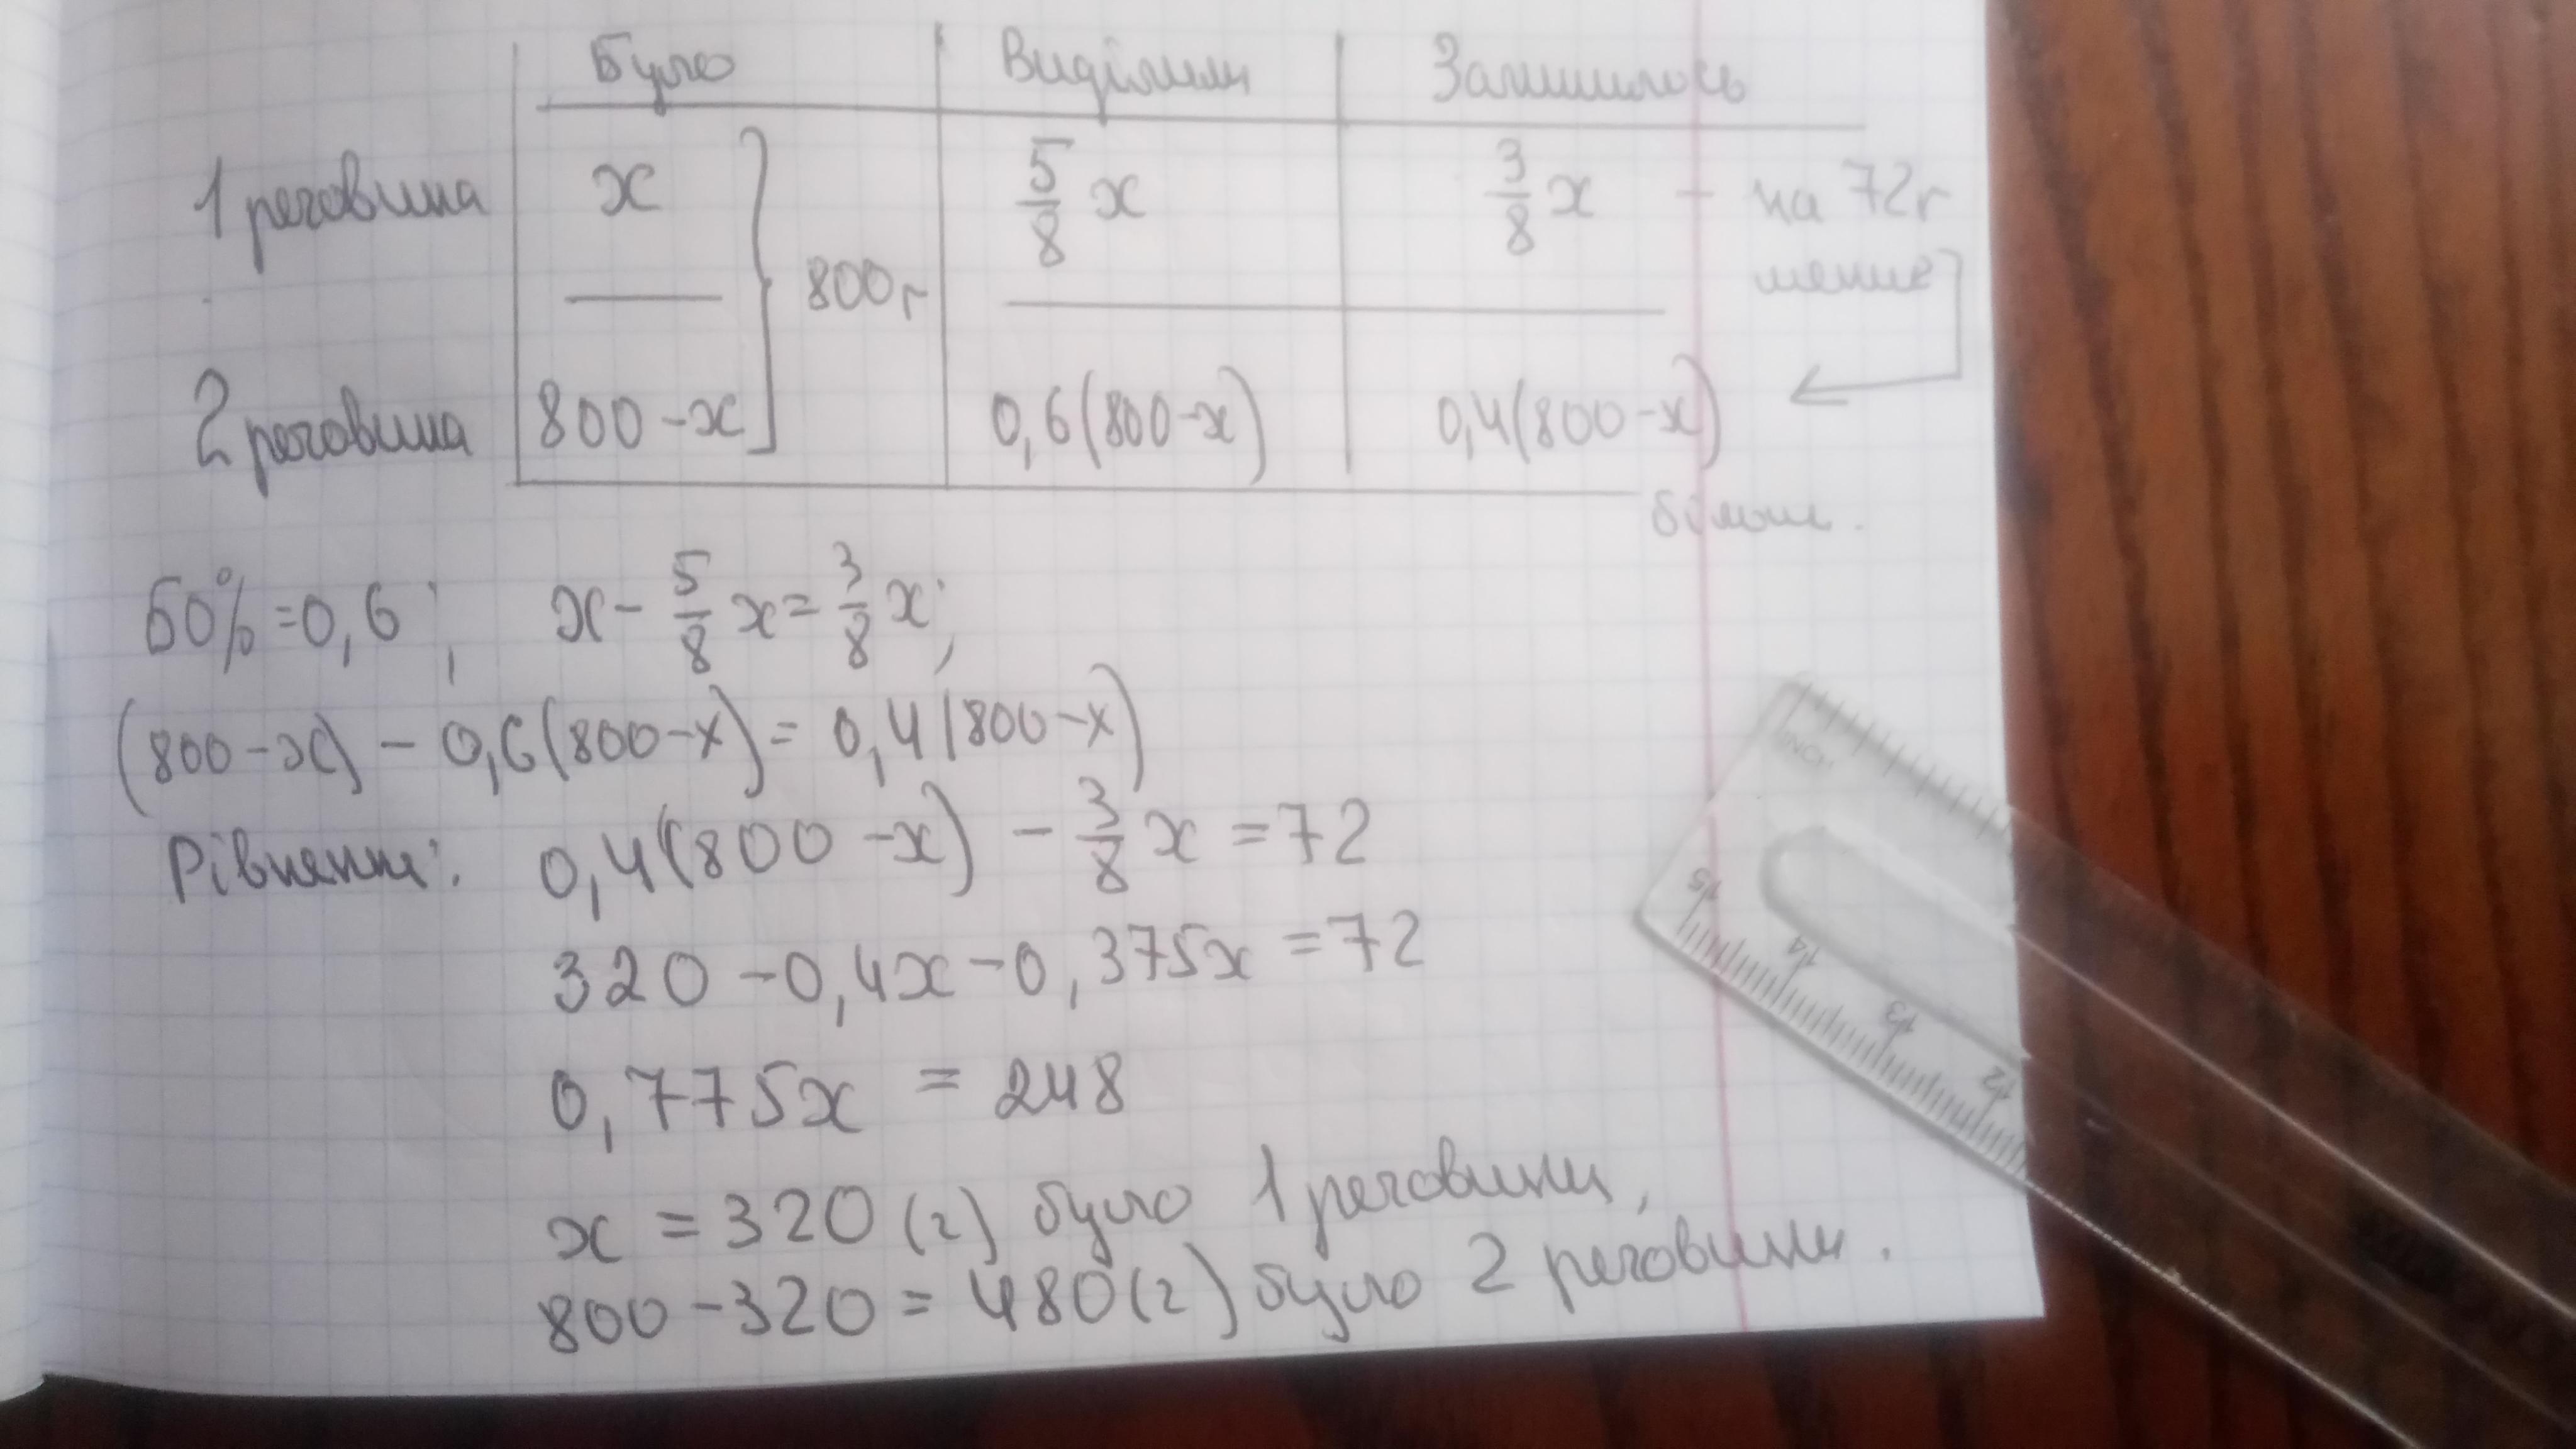 Було Виділили Залишилось
1 речовина x 5/8 x 3/8 x - на 72 г
800 г менше
2 речовина 800-x 0,6(800-x) 0,4(800-x)
більш.
60%=0,6; x - 5/8 x = 3/8 x;
(800-x) - 0,6(800-x) = 0,4(800-x)
Рівняння: 0,4(800-x) - 3/8 x = 72
320 - 0,4x - 0,375x = 72
0,775x = 248
x = 320 (г) було 1 речовини,
800 - 320 = 480 (г) було 2 речовини.
15 14 13 12